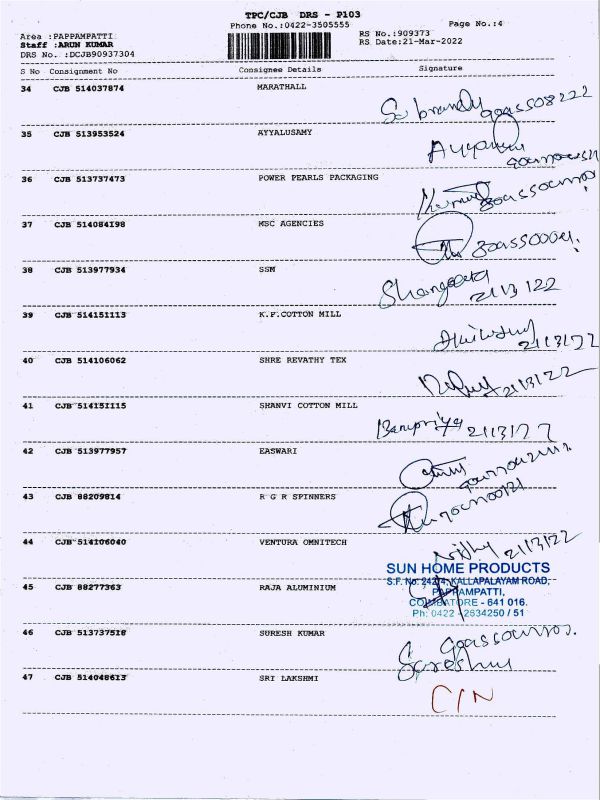 TPC/CJB DRS - P103
Phone No.:0422-3505555 Page No.:4
Area :PAPPAMPATTI RS No.:909373
Staff :ARUN KUMAR RS Date:21-Mar-2022
DRS No. :DCJB90937304
S No Consignment No Consignee Details Signature
34 CJB 514037874 MARATHALL
35 CJB 513953524 AYYALUSAMY
36 CJB 513737473 POWER PEARLS PACKAGING
37 CJB 514084198 MSC AGENCIES
38 CJB 513977934 SSM
Shangeeta 21/3/22
39 CJB 514151113 K.F.COTTON MILL
21/3/22
40 CJB 514106062 SHRE REVATHY TEX
21/3/22
41 CJB 514151115 SHANVI COTTON MILL
21/3/22
42 CJB 513977957 EASWARI
43 CJB 88209814 R G R SPINNERS
44 CJB 514106040 VENTURA OMNITECH
21/3/22
SUN HOME PRODUCTS
S.F. No. 242/4, KALLAPALAYAM ROAD,
45 CJB 88277363 RAJA ALUMINIUM
PAPPAMPATTI,
COIMBATORE - 641 016.
Ph: 0422 - 2634250 / 51
46 CJB 513737518 SURESH KUMAR
47 CJB 514048613 SRI LAKSHMI
C/N